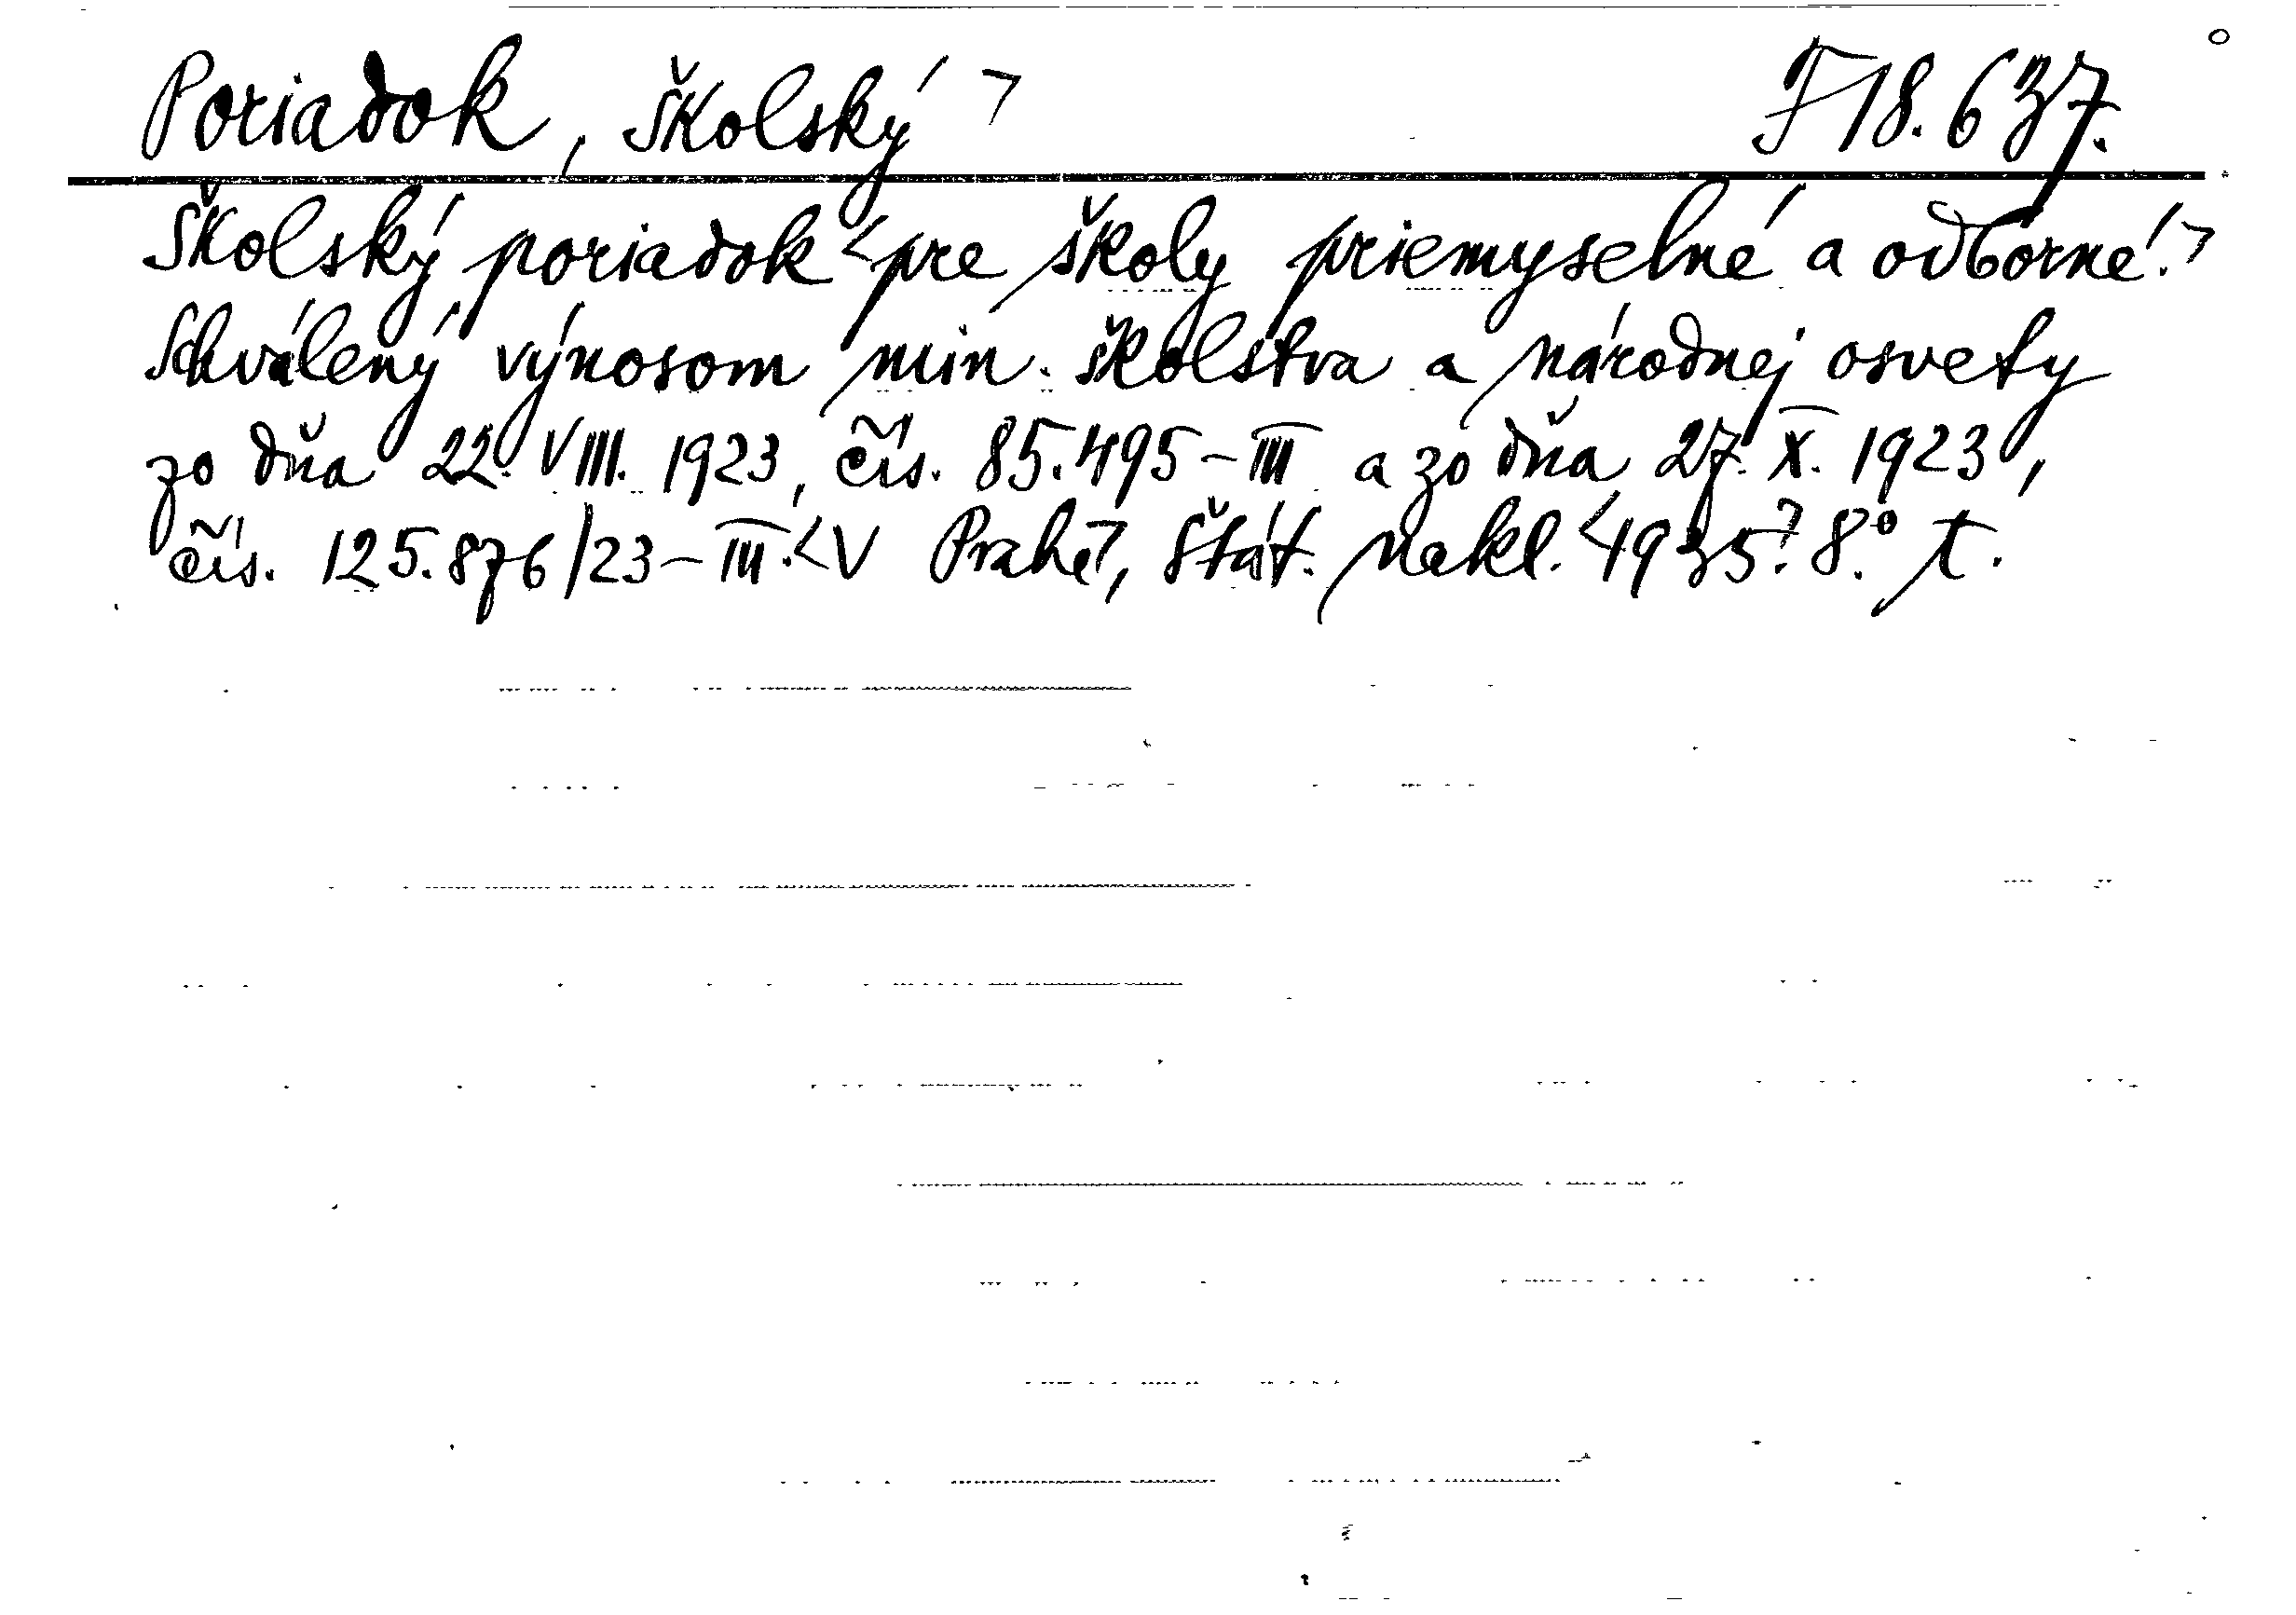 Poriadok, školský ¬ F 18.637.
Školský poriadok < pre školy priemyselné a odborné. >
Schválený výnosom min. školstva a národnej osvety
zo dňa 22. VIII. 1923, čís. 85.495-III a zo dňa 27. X. 1923,
čís. 125.876/23-III. < V Prahe >, Štát. nakl. < 1935? 8.° t.